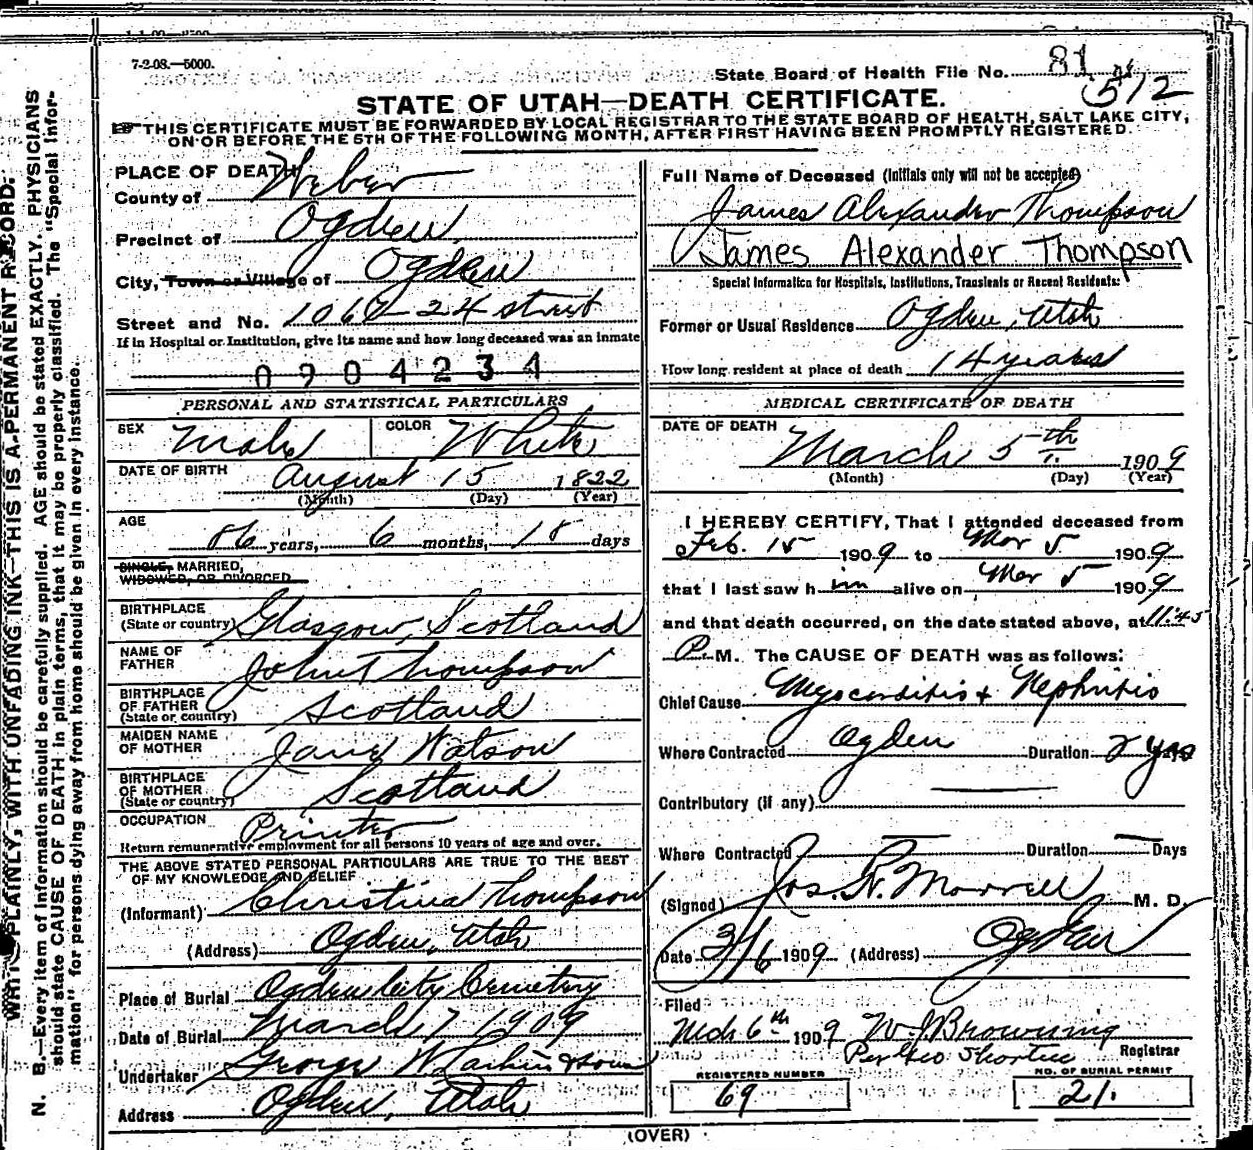 7-2-08.—5000.
State Board of Health File No. 81
512
STATE OF UTAH—DEATH CERTIFICATE.
THIS CERTIFICATE MUST BE FORWARDED BY LOCAL REGISTRAR TO THE STATE BOARD OF HEALTH, SALT LAKE CITY,
ON OR BEFORE THE 5TH OF THE FOLLOWING MONTH, AFTER FIRST HAVING BEEN PROMPTLY REGISTERED.
PLACE OF DEATH
County of Weber
Precinct of Ogden
City, Town or Village of Ogden
Street and No. 24 street
If in Hospital or Institution, give its name and how long deceased was an inmate
0904234
PERSONAL AND STATISTICAL PARTICULARS
SEX Male COLOR White
DATE OF BIRTH August 15 1822
(Month) (Day) (Year)
AGE 86 years, 6 months, 18 days
SINGLE, MARRIED,
WIDOWED, OR DIVORCED
BIRTHPLACE
(State or country) Glasgow, Scotland
NAME OF
FATHER John Thompson
BIRTHPLACE
OF FATHER
(State or country) Scotland
MAIDEN NAME
OF MOTHER Jane Watson
BIRTHPLACE
OF MOTHER
(State or country) Scotland
OCCUPATION Printer
Return remunerative employment for all persons 10 years of age and over.
THE ABOVE STATED PERSONAL PARTICULARS ARE TRUE TO THE BEST
OF MY KNOWLEDGE AND BELIEF
(Informant) Christina Thompson
(Address) Ogden, Utah
Place of Burial Ogden City Cemetery
Date of Burial March 7 1909
Undertaker George W Larkin & Sons
Address Ogden, Utah
Full Name of Deceased (Initials only will not be accepted)
James Alexander Thompson
James Alexander Thompson
Special Information for Hospitals, Institutions, Transients or Recent Residents:
Former or Usual Residence Ogden, Utah
How long resident at place of death 14 years
MEDICAL CERTIFICATE OF DEATH
DATE OF DEATH March 5th 1909
(Month) (Day) (Year)
I HEREBY CERTIFY, That I attended deceased from
Feb. 15 1909 to Mar 5 1909
that I last saw him alive on Mar 5 1909
and that death occurred, on the date stated above, at 11:45
P. M. The CAUSE OF DEATH was as follows:
Chief Cause Myocarditis & Nephritis
Where Contracted Ogden Duration 2 yrs
Contributory (if any)
Where Contracted Duration Days
(Signed) Jos. R. Morrell M. D.
Date 3/6 1909 (Address) Ogden
Filed
Mch 6th 1909 W J Browning
Per Geo Shorten Registrar
REGISTERED NUMBER
69
NO. OF BURIAL PERMIT
21.
(OVER)
WRITE PLAINLY, WITH UNFADING INK—THIS IS A PERMANENT RECORD.
N. B.—Every item of information should be carefully supplied. AGE should be stated EXACTLY. PHYSICIANS
should state CAUSE OF DEATH in plain terms, that it may be properly classified. The "Special Infor-
mation" for persons dying away from home should be given in every instance.